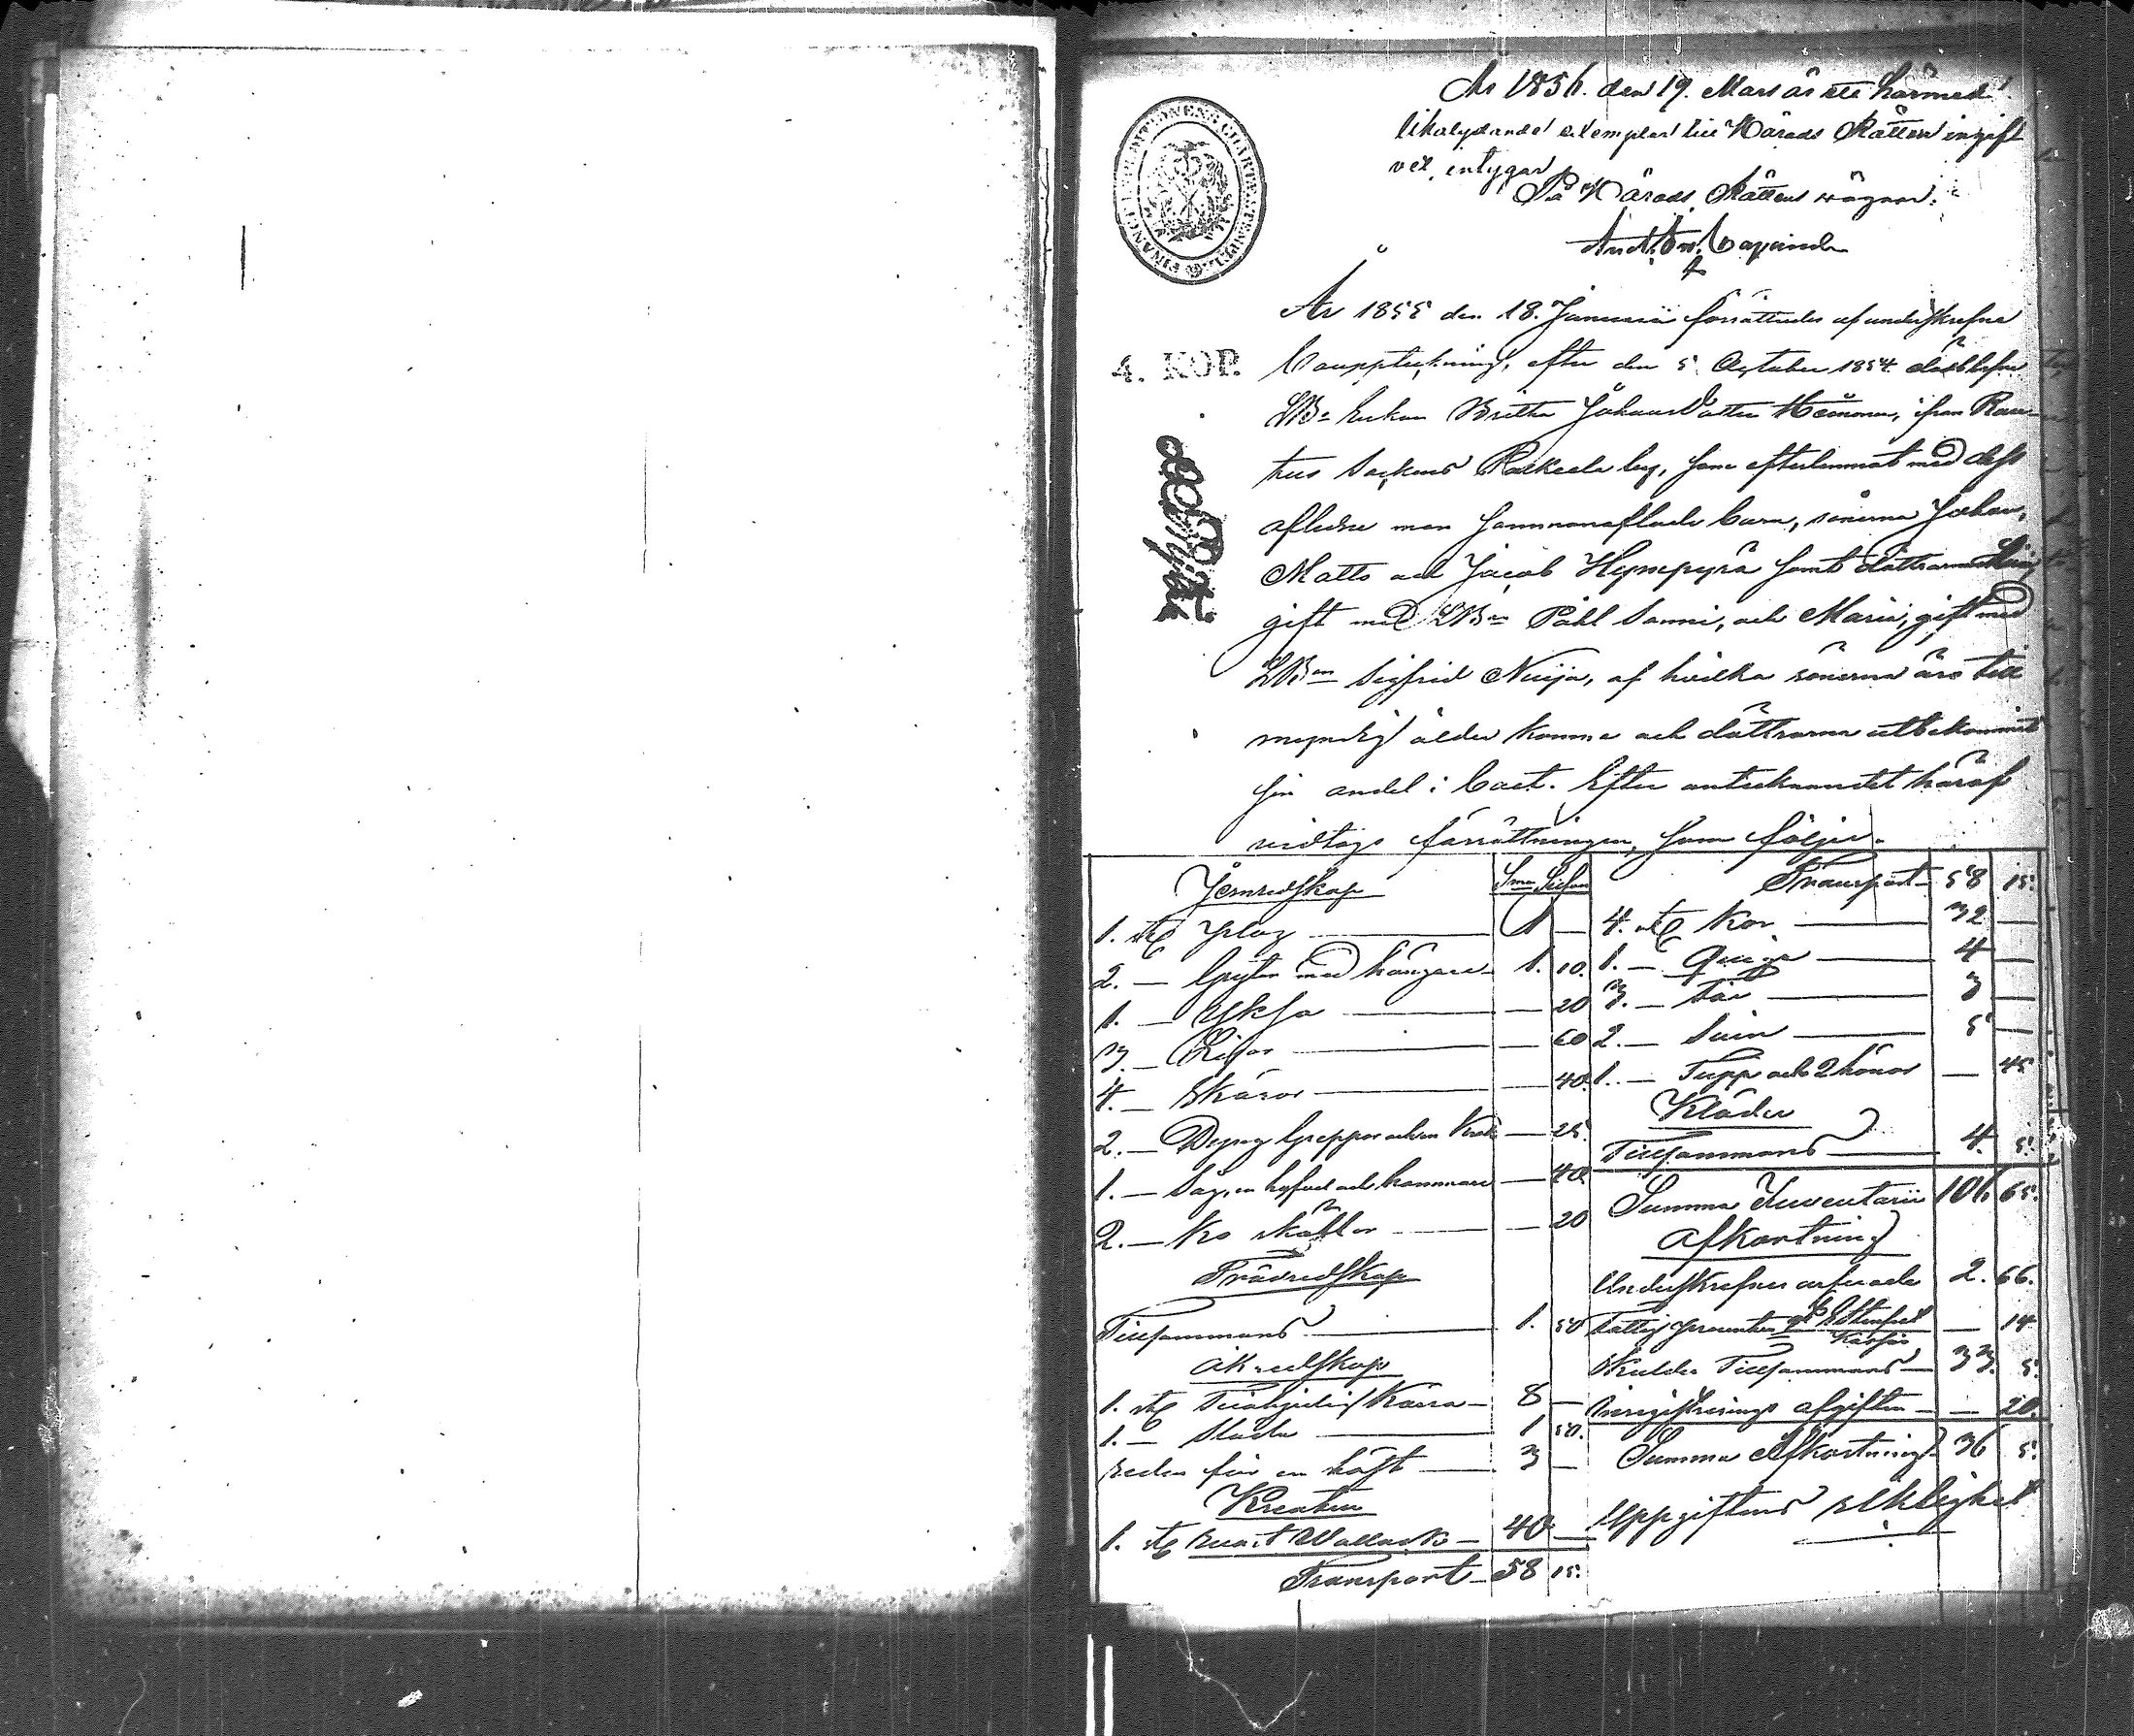 År 1856. den 19. Mars är ett härmed
likalydande exemplar till Härads Rätten ingift
vet, entygar
På Härads Rättens vägnar.
År 1855 den 18. Januarii förrättades af underskrefne
4. KOP.
Bouppteckning, efter den 5 October 1854 dödblefne
Enkan Britha Johans Dotter Hämma, ifrån Rau-
tus Sockens Raikula by, som efterlemnat med dess
aflidne man sammanaflade barn, sönerna Johan,
Matts och Jacob Hyypyrä samt döttrarna
gift med LBn Påhl Sanni, och Maria, gift med
LBn Sigfrid Nuija, af hvilka sönerna äro till
myndig ålder komne och döttrarna utbekommit
sin andel i boet. Efter antecknandet häraf
vidtogs förrättningen, som följer.
Jernredskap
1. st. Plog 1 —
2. — Grytor med hängare 1. 10.
1. — Yksa — 20
3. — Liar — 60
4. — Skäror — 40.
2. — Dyng Greppar och en — 25.
1. — Såg, en hyfvel och hammare — 40.
2. — Ko skällor — 20
Trädredskap
Tillsammans 1. 50
Åkredskap
1. st. Kärra 8 —
1. — Släda 1 50.
Reden för en häst 3 —
Kreatur
1. st. svart Wallack 40 —
Transport 58 15.
Transport 58 15.
4. st. Kor 32 —
1. — Quiga 4 —
3. — Får 3 —
2. — Svin 5 —
1. — Tupp och 2 hönor — 45
Kläder
Tillsammans 4. 5.
Summa Inventarii 101. 65.
Afkortning
Underskrefnes arfvode 2. 66.
Fattig procenten — 14
Skulder Tillsammans 33. 5.
afgiften — 20.
Summa Afkortning 36 5.
Uppgiftens riktighet